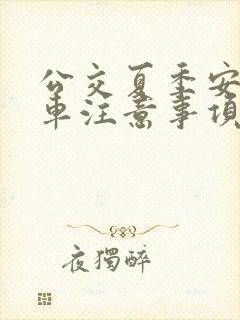 公交夏季安
车注意事项
夜獨醉